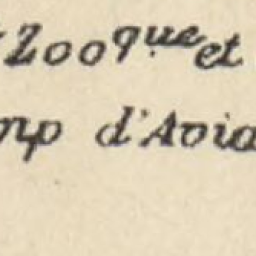 Zooque et
mp d'Avia